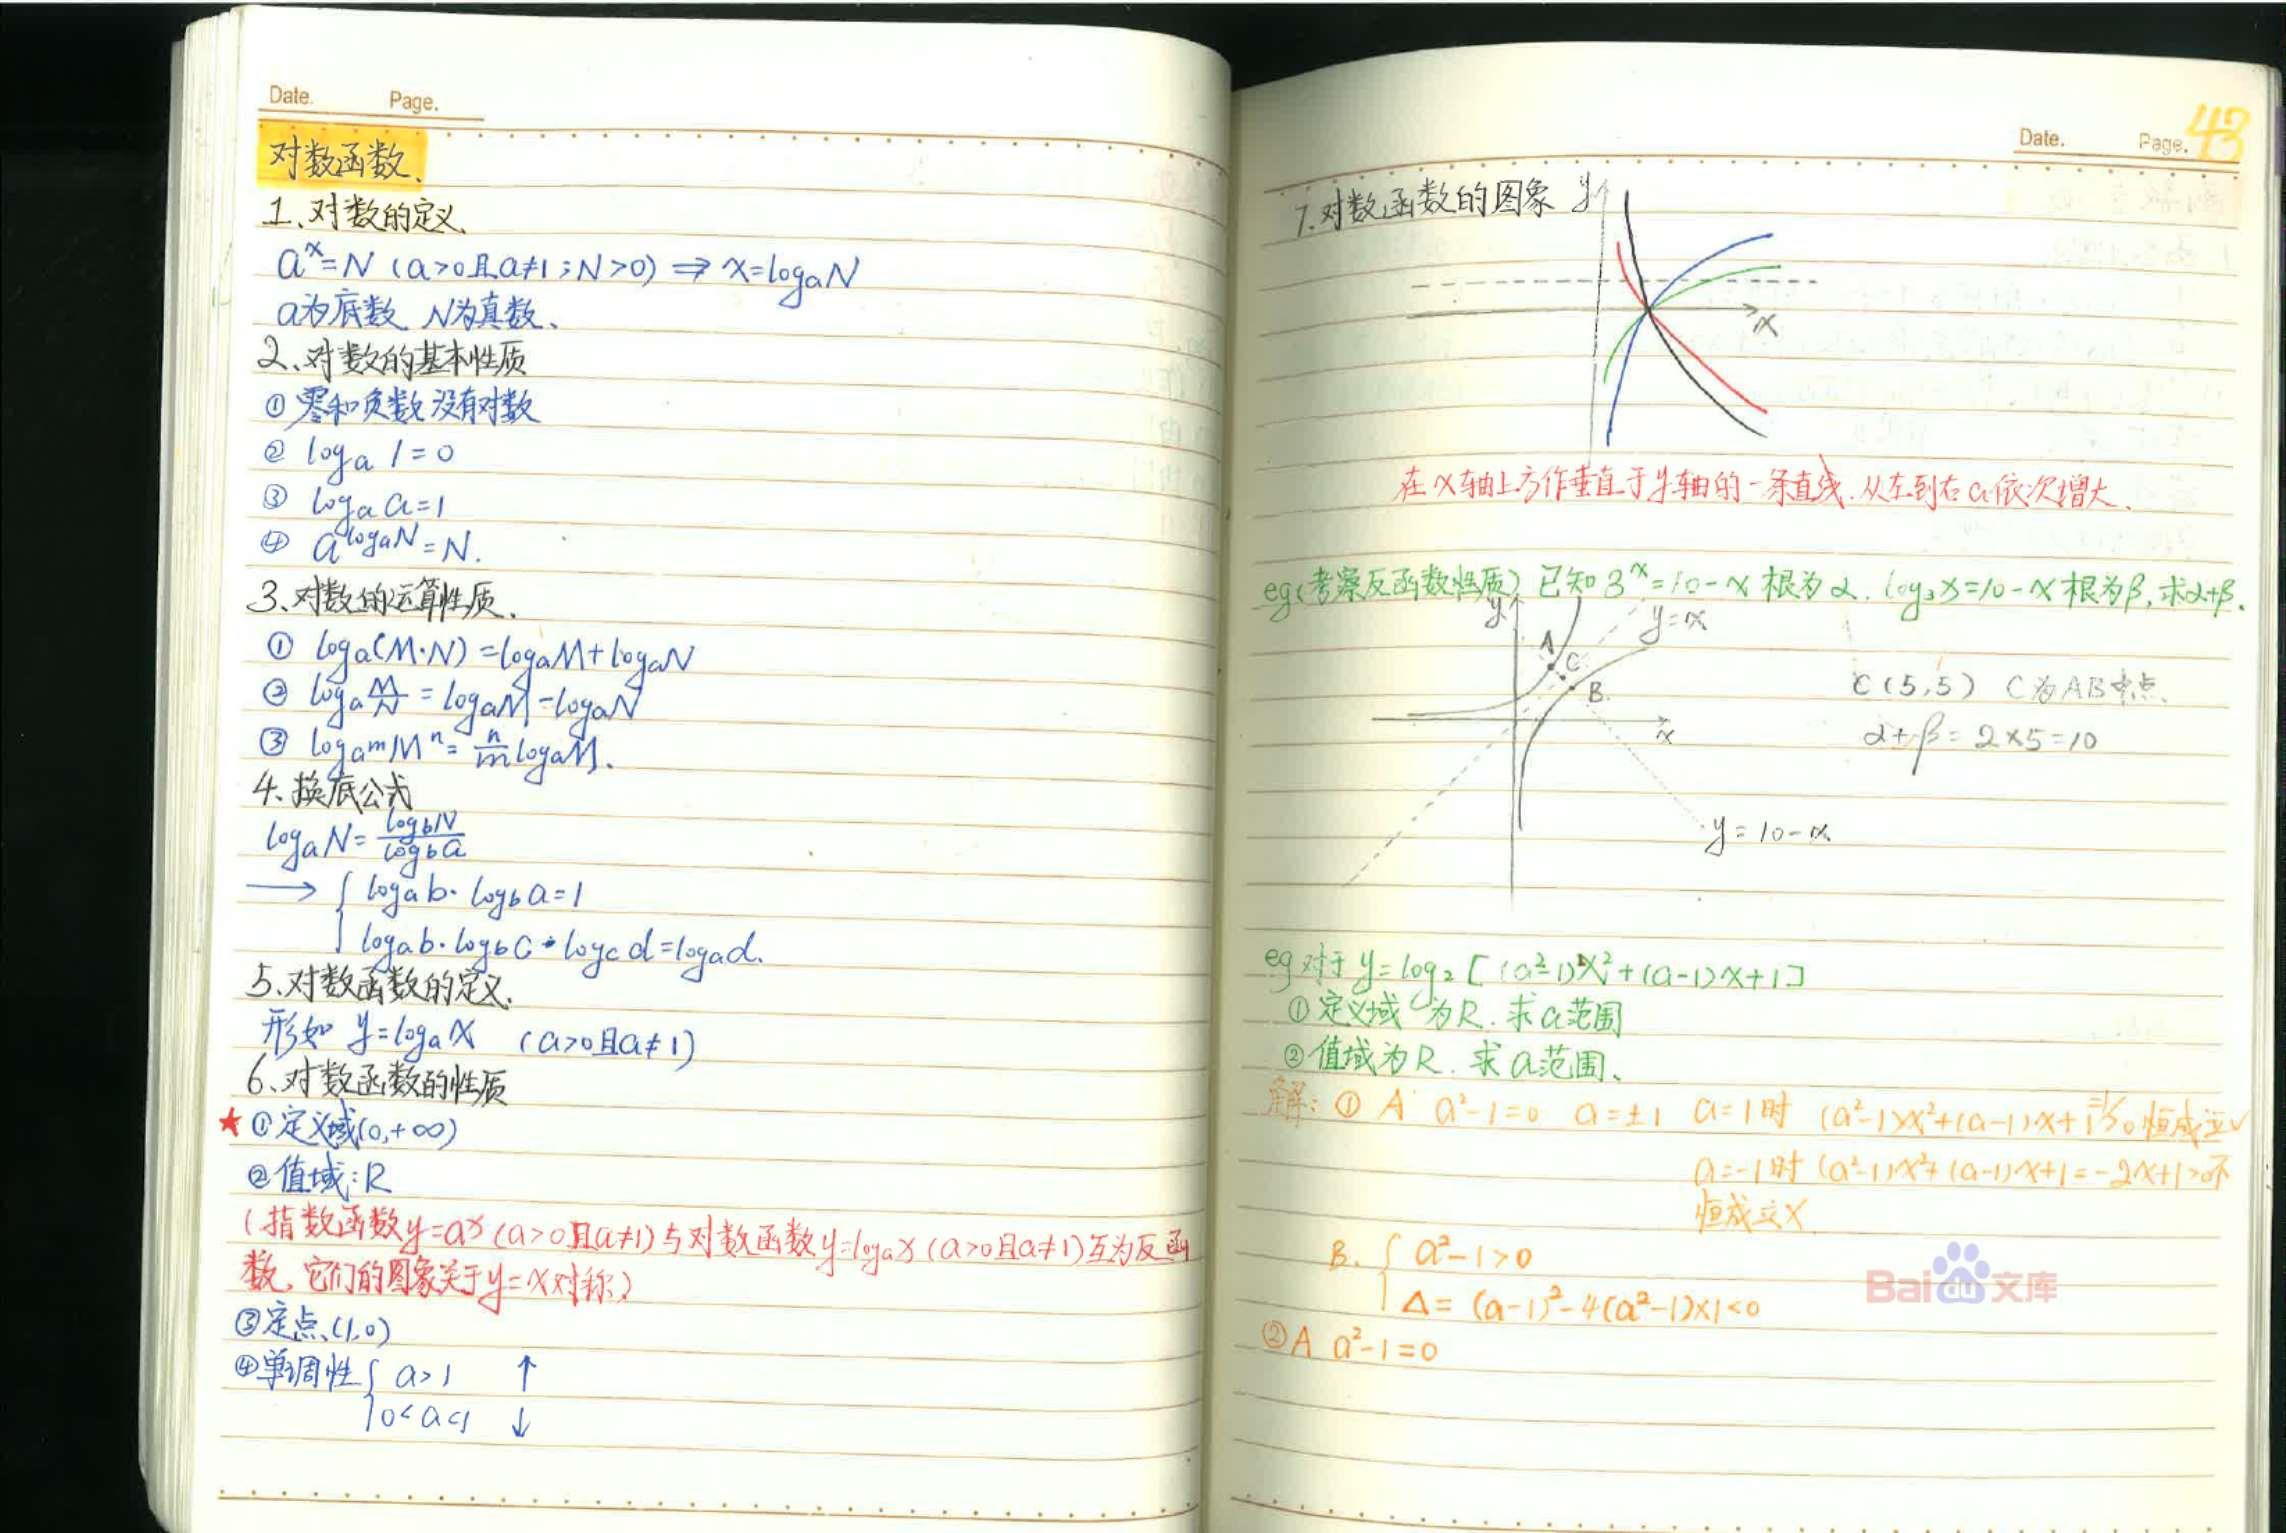 Date. Page.
对数函数、
1、对数的定义、
aˣ=N (a>0且a≠1;N>0) ⇒ x=logₐN
a为底数 N为真数、
2、对数的基本性质
① 零和负数没有对数
② logₐ1=0
③ logₐa=1
④ a^(logₐN)=N.
3、对数的运算性质、
① logₐ(M·N)=logₐM+logₐN
② logₐ M/N = logₐM-logₐN
③ log_(a^m) Mⁿ = n/m logₐM.
4、换底公式
logₐN= log_b N / log_b a
→ { logₐb·log_b a=1
logₐb·log_b c·log_c d=logₐd.
5、对数函数的定义、
形如 y=logₐx (a>0且a≠1)
6、对数函数的性质
★ ①定义域(0,+∞)
②值域:R
(指数函数y=aˣ(a>0且a≠1)与对数函数y=logₐx(a>0且a≠1)互为反函
数、它们的图象关于y=x对称)
③定点(1,0)
④单调性{ a>1 ↑
0<a<1 ↓
43
Date. Page.
7.对数函数的图象 y
x
在x轴上方作垂直于y轴的一条直线、从左到右a依次增大、
eg(考察反函数性质)已知3ˣ=10-x根为α. log₃x=10-x根为β,求α+β.
y y=x
A
C
B
x
C(5,5) C为AB中点、
α+β=2×5=10
y=10-x
eg 对于 y=log₂[(a²-1)x²+(a-1)x+1]
①定义域为R.求a范围
②值域为R.求a范围、
解:① A a²-1=0 a=±1 a=1时 (a²-1)x²+(a-1)x+1=1>0恒成立√
a=-1时(a²-1)x²+(a-1)x+1=-2x+1>0不
恒成立×
B. { a²-1>0
Δ=(a-1)²-4(a²-1)×1<0
②A a²-1=0
Baidu文库